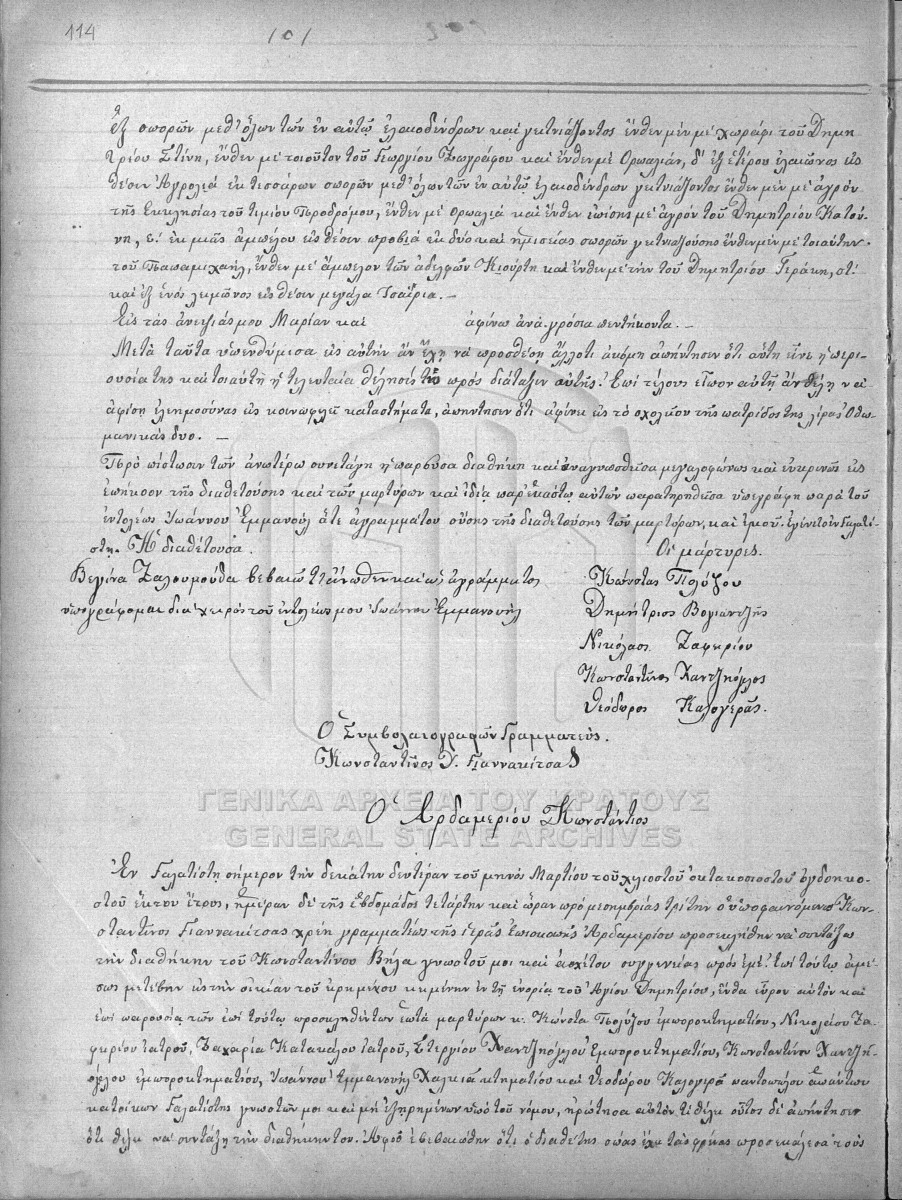 114
101
ἓξ σπορῶν μεθ' ὅλων τῶν ἐν αὐτῷ ἐλαιοδένδρων καὶ γειτνιάζοντος ἔνθεν μὲν μὲ χωράφι τοῦ Δημη
τρίου Στίνη, ἔνθεν μὲ τοιοῦτον τοῦ Γεωργίου Ζωγράφου καὶ ἔνθεν μὲ δ' ἐξ ἑτέρου ἐλαιῶνος εἰς
θέσιν Ἀγρολιὰ ἐκ τεσσάρων σπορῶν μεθ' ὅλων τῶν ἐν αὐτῷ ἐλαιοδένδρων γειτνιάζοντος ἔνθεν μὲν μὲ ἀγρὸν
τῆς Ἐκκλησίας τοῦ τιμίου Προδρόμου, ἔνθεν μὲ καὶ ἔνθεν ἐπίσης μὲ ἀγρὸν τοῦ Δημητρίου Κατού-
νη, ε! ἐκ μιᾶς ἀμπέλου εἰς θέσιν προβιὰ ἐκ δύο καὶ ἡμισείας σπορῶν γειτνιαζούσης ἔνθεν μὲν μὲ τοιαύτην
τοῦ Παπαμιχαὴλ, ἔνθεν μὲ ἄμπελον τῶν ἀδελφῶν Κιούρτη καὶ ἔνθεν μὲ τὴν τοῦ Δημητρίου Γεράκη, στ!
καὶ ἐξ ἑνὸς λειμῶνος εἰς θέσιν μεγάλα Τσαΐρια. —
Εἰς τὰς ἀνεψιάς μου Μαρίαν καὶ ἀφίνω ἀνὰ γρόσα πεντήκοντα. —
Μετὰ ταῦτα ὑπενθύμισα εἰς αὐτὴν ἂν ἔχῃ νὰ προσθέσῃ ἄλλο τι ἀκόμη ἀπήντησεν ὅτι αὕτη εἶνε ἡ περι-
ουσία της καὶ τοιαύτη ἡ τελευταία θέλησίς της πρὸς διάταξιν αὐτῆς. Ἐπὶ τέλους εἶπον αὐτῇ ἂν θέλῃ νὰ
ἀφίσῃ ἐλεημοσύνας εἰς κοινωφελῆ καταστήματα, ἀπήντησεν ὅτι ἀφίνει εἰς τὸ σχολεῖον τῆς πατρίδος της λίρας Ὀθω-
μανικὰς δύο. —
Πρὸς πίστωσιν τῶν ἀνωτέρω συνετάγη ἡ παροῦσα διαθήκη καὶ ἀναγνωσθεῖσα μεγαλοφώνως καὶ εὐκρινῶς εἰς
ἐπήκοον τῆς διαθετούσης καὶ τῶν μαρτύρων καὶ ἰδίᾳ παρ' ἑκάστῳ αὐτῶν παρατηρηθεῖσα ὑπεγράφη παρὰ τοῦ
ἐντολέως Ἰωάννου Ἐμμανουὴλ ἅτε ἀγραμμάτου οὔσης τῆς διαθετούσης τῶν μαρτύρων, καὶ ἐμοῦ. Ἐγένετο ἐν Γαλατί-
στῃ. Ἡ διαθέτουσα.
Βεγίνα Ζαλουμούδα βεβαιῶ τἄνωθεν καὶ ὡς ἀγράμματος
ὑπογράφομαι διὰ χειρὸς τοῦ ἐντολέως μου Ἰωάννου Ἐμμανουήλ
Οἱ μάρτυρες.
Κώνστας Πολύζου
Δημήτριος Βογιαντζῆς
Νικόλαος Ζαφειρίου
Κωνσταντῖνος Χαντζηόγλος
Θεόδωρος Καλογερᾶς.
Ὁ Συμβολαιογραφῶν Γραμματεύς.
Κωνσταντῖνος Γιαννακίτσας
ΓΕΝΙΚΑ ΑΡΧΕΙΑ ΤΟΥ ΚΡΑΤΟΥΣ
GENERAL STATE ARCHIVES
Ὁ Ἀρδαμερίου Κωνστάντιος
Ἐν Γαλατίστῃ σήμερον τὴν δεκάτην δευτέραν τοῦ μηνὸς Μαρτίου τοῦ χιλιοστοῦ ὀκτακοσιοστοῦ ὀγδοηκο-
στοῦ ἕκτου ἔτους, ἡμέραν δὲ τῆς ἑβδομάδος τετάρτην καὶ ὥραν πρὸ μεσημβρίας τρίτην ὁ ὑποφαινόμενος Κων-
σταντῖνος Γιαννακίτσας χρέη γραμματέως τῆς ἱερᾶς Ἐπισκοπῆς Ἀρδαμερίου προσεκλήθην νὰ συντάξω
τὴν διαθήκην τοῦ Κωνσταντίνου Βήλα γνωστοῦ μοι καὶ ἀσχέτου συγγενείας πρὸς ἐμέ. Ἐπὶ τούτῳ ἀμέ-
σως μετέβην εἰς τὴν οἰκίαν τοῦ εἰρημένου κειμένην ἐν τῇ ἐνορίᾳ τοῦ Ἁγίου Δημητρίου, ἔνθα εὗρον αὐτὸν καὶ
ἐπὶ παρουσίᾳ τῶν ἐπὶ τούτῳ προσκληθέντων ἑπτὰ μαρτύρων κ. Κώνστα Πολύζου ἐμποροκτηματίου, Νικολάου Ζα-
φειρίου ἰατροῦ, Ζαχαρία Κατακάλου ἰατροῦ, Στεργίου Χαντζηόγλου Ἐμποροκτηματίου, Κωνσταντίνου Χαντζη-
όγλου ἐμποροκτηματίου, Ἰωάννου Ἐμμανουὴλ Χαλκιᾶ κτηματίου καὶ Θεοδώρου Καλογερᾶ παντοπώλου ἁπάντων
κατοίκων Γαλατίστης γνωστῶν μοι καὶ μὴ ἐξῃρημένων ὑπὸ τοῦ νόμου, ἠρώτησα αὐτὸν τί θέλει οὗτος δὲ ἀπήντησεν
ὅτι θέλει νὰ συντάξῃ τὴν διαθήκην του. Ἀφοῦ ἐβεβαιώθην ὅτι ὁ διαθέτης σώας ἔχει τὰς φρένας προσεκάλεσα τοὺς